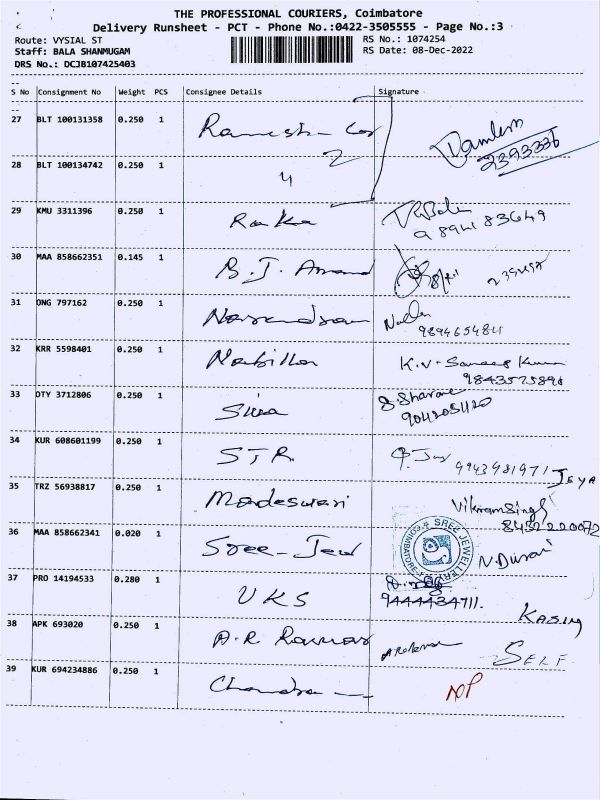 THE PROFESSIONAL COURIERS, Coimbatore
Delivery Runsheet - PCT - Phone No.:0422-3505555 - Page No.:3
Route: VYSIAL ST RS No.: 1074254
Staff: BALA SHANMUGAM RS Date: 08-Dec-2022
DRS No.: DCJB107425403
S No Consignment No Weight PCS Consignee Details Signature
27 BLT 100131358 0.250 1 Ramesh 2393336
28 BLT 100134742 0.250 1 4 2
29 KMU 3311396 0.250 1 Raka 9894183649
30 MAA 858662351 0.145 1 B. J. Anand
31 ONG 797162 0.250 1 Narendran 9894654841
32 KRR 5598401 0.250 1 Nabilla K.V. 9843575898
33 OTY 3712806 0.250 1 Siva S. Sharane 904205420
34 KUR 608601199 0.250 1 STR 9943981971 JEYA
35 TRZ 56938817 0.250 1 Madeswari Vikram Singh 8432220072
36 MAA 858662341 0.020 1 Sree-Jew SREE JEWELLERY COIMBATORE N. Durai
37 PRO 14194533 0.280 1 UKS 9444434711. KASIM
38 APK 693020 0.250 1 A.R SELF
39 KUR 694234886 0.250 1 Chandra NP